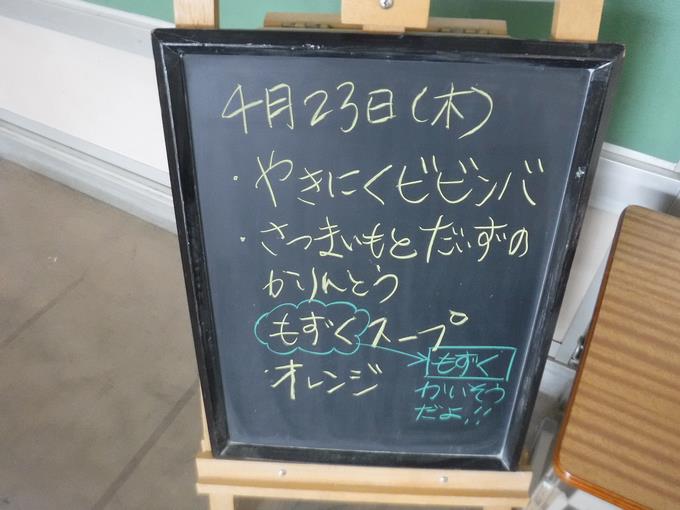 4月23日(木)
・やきにくビビンバ
・さつまいもとだいずの
かりんとう
もずくスープ
・オレンジ
もずく
かいそう
だよ!!